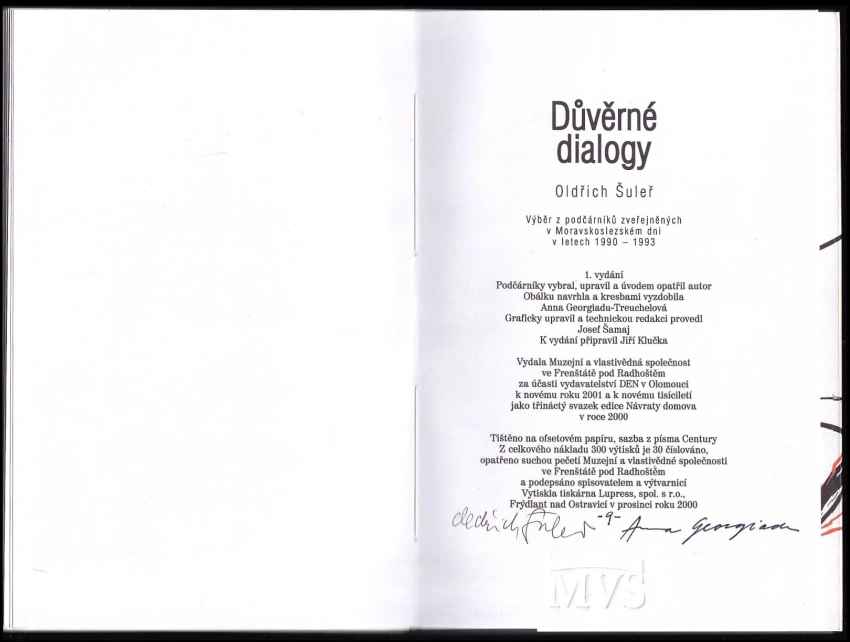 Důvěrné
dialogy
Oldřich Šuleř
Výběr z podčárníků zveřejněných
v Moravskoslezském dni
v letech 1990 – 1993
1. vydání
Podčárníky vybral, upravil a úvodem opatřil autor
Obálku navrhla a kresbami vyzdobila
Anna Georgiadu-Treuchelová
Graficky upravil a technickou redakci provedl
Josef Šamaj
K vydání připravil Jiří Klučka
Vydala Muzejní a vlastivědná společnost
ve Frenštátě pod Radhoštěm
za účasti vydavatelství DEN v Olomouci
k novému roku 2001 a k novému tisíciletí
jako třináctý svazek edice Návraty domova
v roce 2000
Tištěno na ofsetovém papíru, sazba z písma Century
Z celkového nákladu 300 výtisků je 30 číslováno,
opatřeno suchou pečetí Muzejní a vlastivědné společnosti
ve Frenštátě pod Radhoštěm
a podepsáno spisovatelem a výtvarnicí
Vytiskla tiskárna Lupress, spol. s r.o.,
Frýdlant nad Ostravicí v prosinci roku 2000
Oldřich Šuleř -9- Anna Georgiadu
MVS